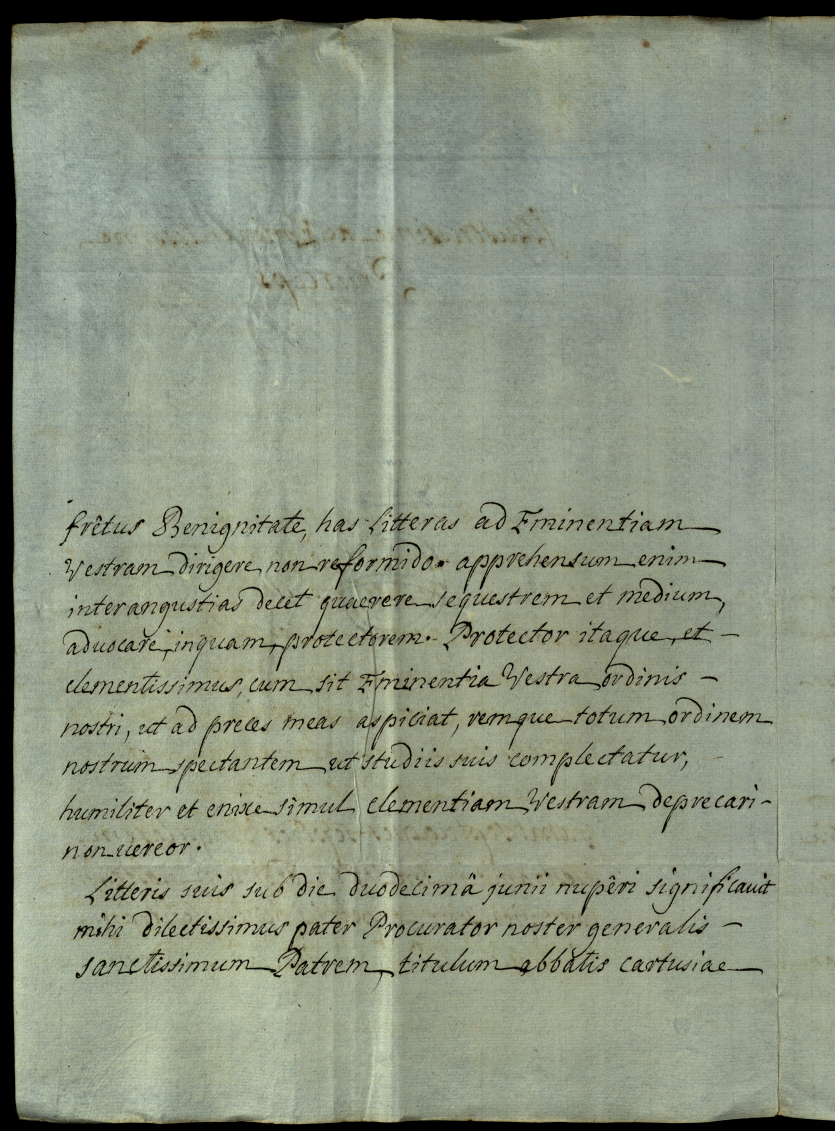 frêtus Benignitate, has Litteras ad Eminentiam
Vestram dirigere non reformido. apprehensum enim
inter angustias decet quaerere sequestrem et medium,
aduocare, inquam, protectorem. Protector itaque, et -
clementissimus, cum sit Eminentia Vestra ordinis -
nostri, ut ad preces meas aspiciat, remque totum ordinem
nostrum spectantem ut studiis suis complectatur,
humiliter et enixe simul clementiam Vestram deprecari -
non uereor.
Litteris suis sub die duodecimâ junii nupêri significauit
mihi dilectissimus pater Procurator noster generalis -
sanctissimum Patrem, titulum abbatis cartusiae